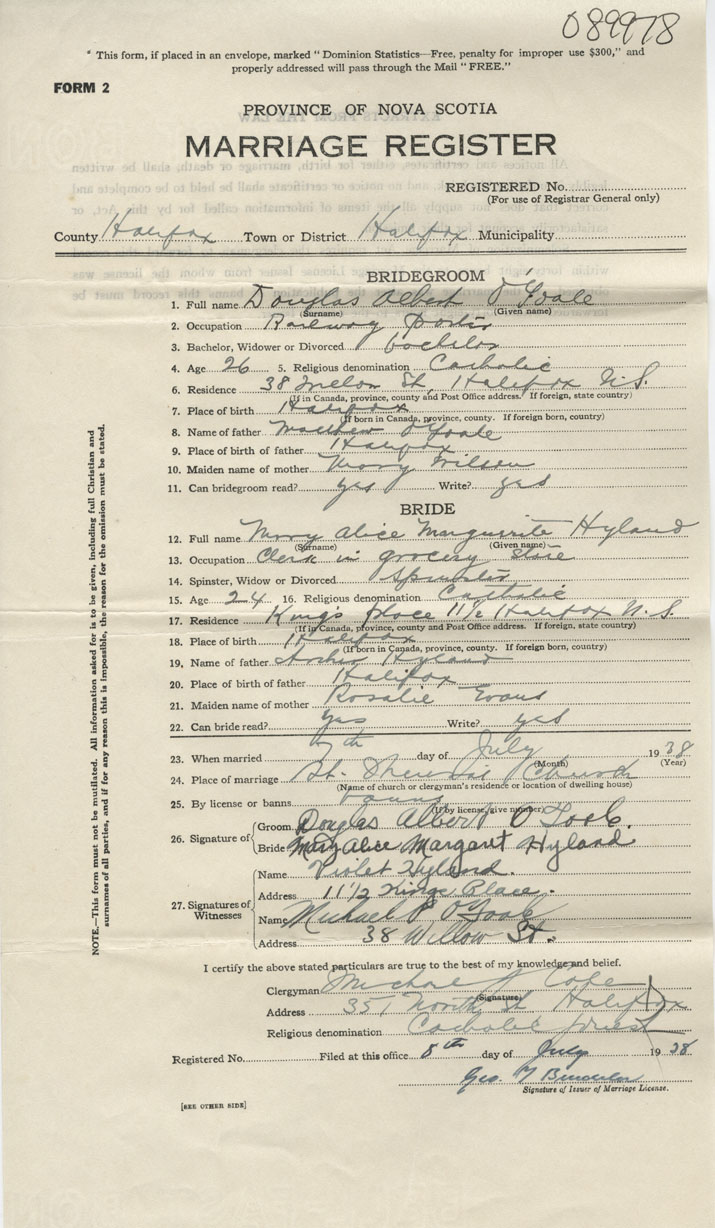 089978
" This form, if placed in an envelope, marked " Dominion Statistics—Free, penalty for improper use $300," and
properly addressed will pass through the Mail " FREE."
FORM 2
PROVINCE OF NOVA SCOTIA
MARRIAGE REGISTER
REGISTERED No.
(For use of Registrar General only)
County Halifax Town or District Halifax Municipality
BRIDEGROOM
1. Full name Douglas Albert O'Toole
(Surname) (Given name)
2. Occupation Railway porter
3. Bachelor, Widower or Divorced bachelor
4. Age 26 5. Religious denomination Catholic
6. Residence 38 St, Halifax N.S.
(If in Canada, province, county and Post Office address. If foreign, state country)
7. Place of birth Halifax
(If born in Canada, province, county. If foreign born, country)
8. Name of father Matthew O'Toole
9. Place of father Halifax
10. Maiden name of mother Mary
11. Can bridegroom read? yes Write? yes
BRIDE
12. Full name Mary Alice Marguerite Hyland
(Surname) (Given name)
13. Occupation Clerk in grocery store
14. Spinster, Widow or Divorced Spinster
15. Age 24 16. Religious denomination Catholic
17. Residence King's place 11½ Halifax N.S.
(If in Canada, province, county and Post Office address. If foreign, state country)
18. Place of birth Halifax
(If born in Canada, province, county. If foreign born, country)
19. Name of father Hyland
20. Place of birth of father Halifax
21. Maiden name of mother Rosalie Evans
22. Can bride read? yes Write? yes
23. When married 7th day of July 1938
(Month) (Year)
24. Place of marriage St. Church
(Name of church or clergyman's residence or location of dwelling house)
25. By license or banns banns
(If by license, give number)
26. Signature of Groom Douglas Albert O'Toole.
Bride Mary Alice Margaret Hyland
27. Signatures of Witnesses Name Violet Hyland.
Address 11½ Kings Place.
Name Michael P O'Toole
Address 38 Willow St.
I certify the above stated particulars are true to the best of my knowledge and belief.
Clergyman Michael J Cole
(Signature)
Address 351 North St Halifax
Religious denomination Catholic priest
Registered No. Filed at this office 8th day of July 1938
Geo.
Signature of Issuer of Marriage License.
[SEE OTHER SIDE]
NOTE.—This form must not be mutilated. All information asked for is to be given, including full Christian and
surnames of all parties, and if for any reason this is impossible, the reason for the omission must be stated.